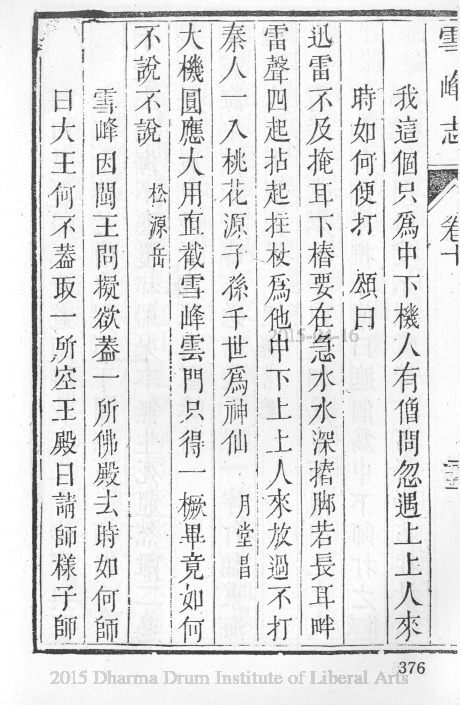 雪峰志 卷十
我這個只爲中下機人有僧問忽遇上上人來
時如何便打 頌曰
迅雷不及掩耳下樁要在急水水深揸脚若長耳畔
雷聲四起拈起拄杖爲他中下上上人來放過不打
秦人一入桃花源子孫千世爲神仙 月堂昌
大機圓應大用直截雪峰雲門只得一橛畢竟如何
不說不說 松源岳
雪峰因閩王問擬欲葢一所佛殿去時如何師
曰大王何不葢取一所空王殿曰請師樣子師
376
2015-04-16
2015 Dharma Drum Institute of Liberal Arts